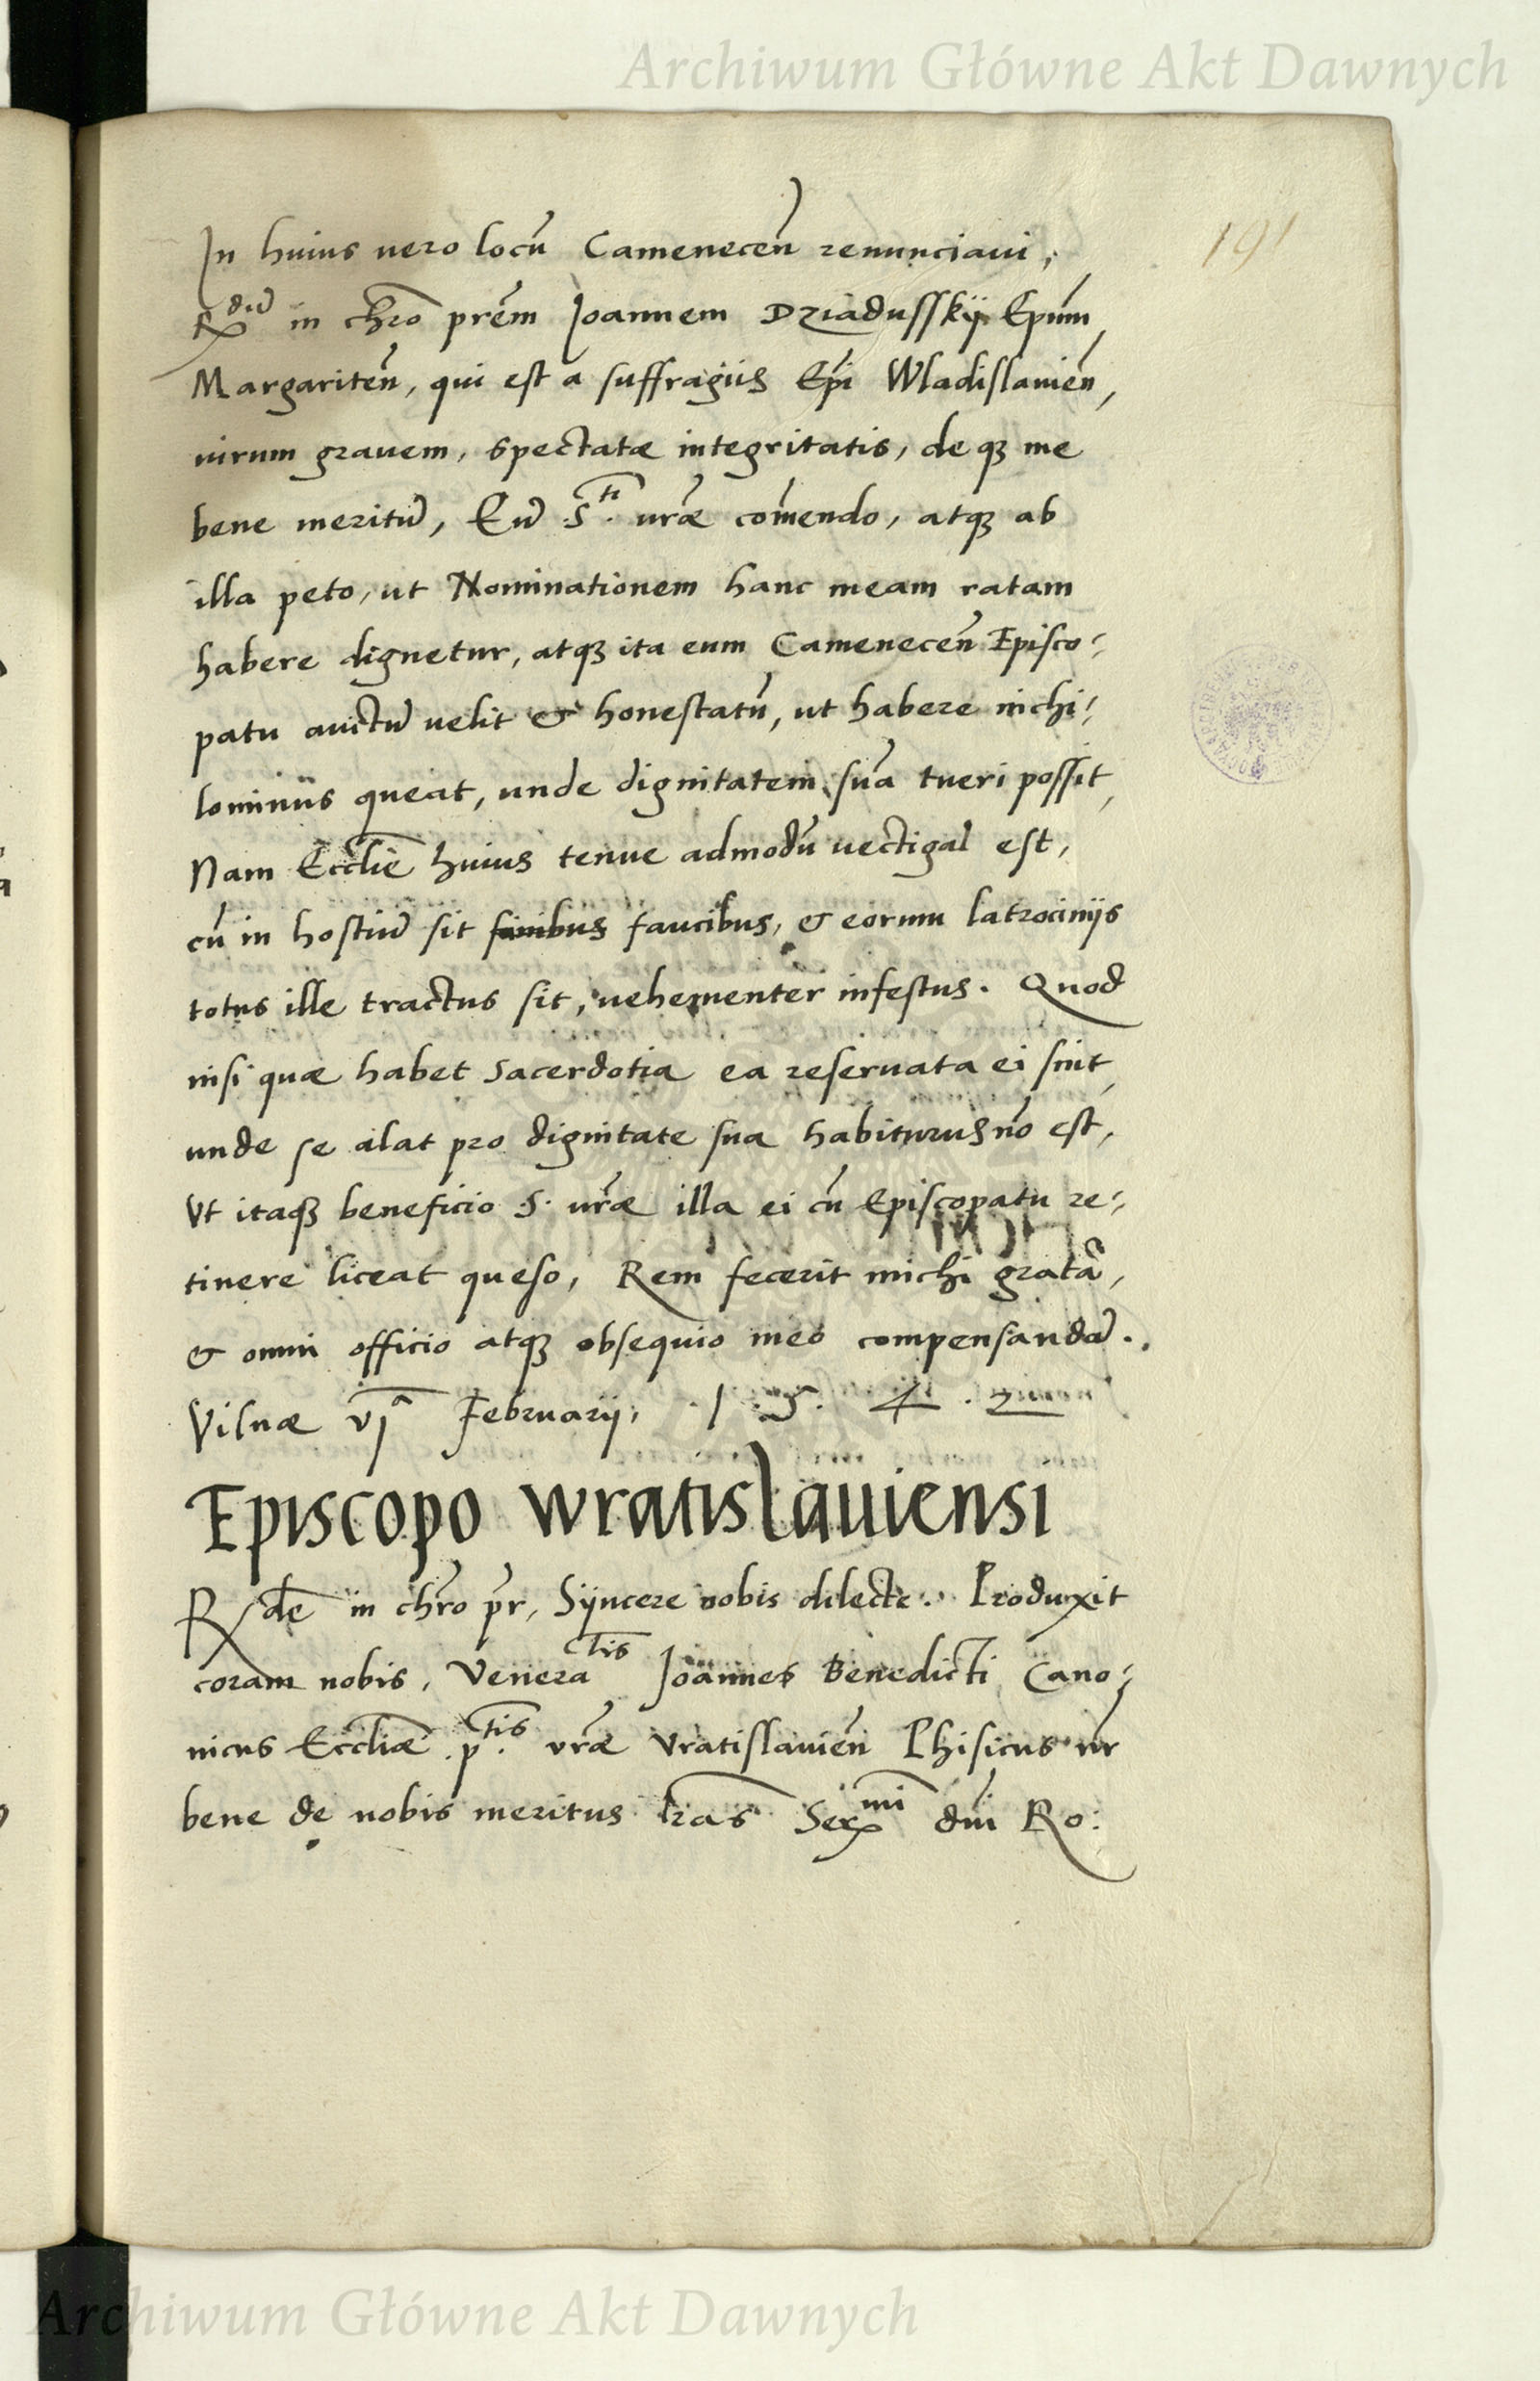 Archiwum Główne Akt Dawnych
191
In huius uero locū Camenecen̄ renunciaui,
R^dū in chr̄o prēm Joannem Dziadusskij Ep̄um,
Margariten̄, qui est a suffragijs Ep̄i Wladislauien̄,
uirum grauem, spectatæ integritatis, de qʒ me
bene meritū, Eū .S^ti. ur̄æ com̄endo, atqʒ ab
illa peto, ut Nominationem hanc meam ratam
habere dignetur, atqʒ ita eum Camenecen̄ Episco⸗
patu auctū uelit & honestatū, ut habere nichi⸗
lominus queat, unde dignitatem suā tueri possit,
Nam Eccl̄ie huius tenue admodū uectigal est,
cū in hostiū sit finibus faucibus, & eorum latrocinijs
totus ille tractus sit, uehementer infestus. Quod
nisi quæ habet sacerdotia ea reseruata ei sint,
unde se alat pro dignitate sua habiturus nō est,
Vt itaqʒ beneficio .S. ur̄æ illa ei cū Episcopatu re⸗
tinere liceat queso, Rem fecerit michi gratā,
& omni officio atqʒ obsequio meo compensandā.
Vilnæ vj^a Februarij, .1.5.4.2
Episcopo Wratislauiensi
R^de in chr̄o pr̄, Syncere nobis dilecte. Produxit
coram nobis, Venera^lis Joannes Benedicti Cano⸗
nicus Eccl̄iæ .p^tis. vr̄æ Vratislauien̄ Phisicus nr̄
bene de nobis meritus lr̄as Ser^mi dn̄i Ro:
Archiwum Główne Akt Dawnych